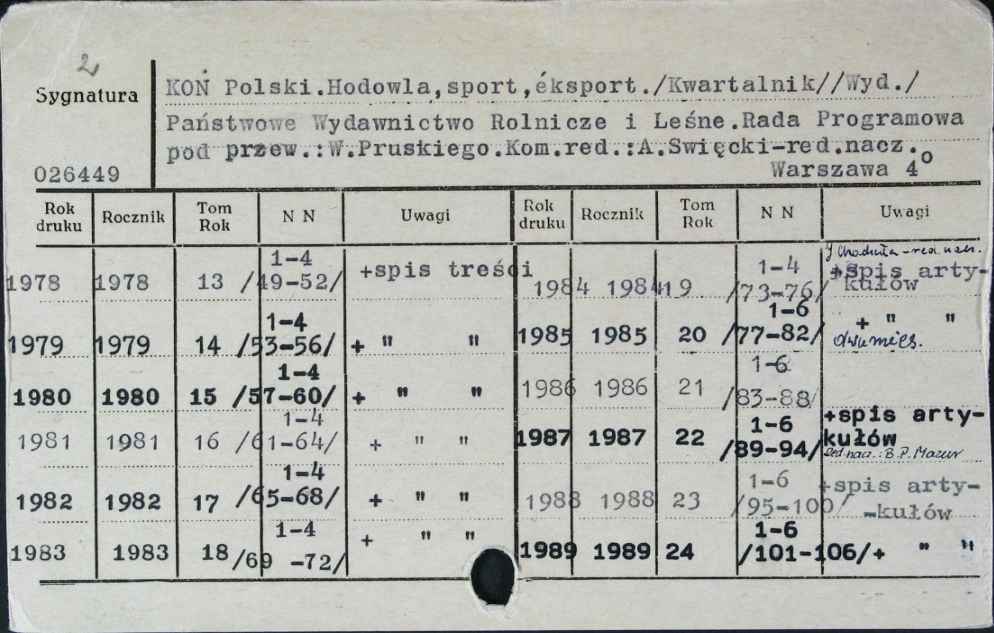 2
Sygnatura
KOŃ Polski.Hodowla,sport,éksport./Kwartalnik//Wyd./
Państwowe Wydawnictwo Rolnicze i Leśne.Rada Programowa
pod przew.:W.Pruskiego.Kom.red.:A.Święcki-red.nacz.
026449
Warszawa 4°
Rok druku Rocznik Tom Rok N N Uwagi Rok druku Rocznik Tom Rok N N Uwagi
1978 1978 13 1-4 /49-52/ +spis treści
1979 1979 14 1-4 /53-56/ + " "
1980 1980 15 1-4 /57-60/ + " "
1981 1981 16 1-4 /61-64/ + " "
1982 1982 17 1-4 /65-68/ + " "
1983 1983 18 1-4 /69 -72/ + " "
red. nacz.
1984 1984 19 1-4 /73-76/ +spis arty-
kułów
1985 1985 20 1-6 /77-82/ + " "
dwumies.
1986 1986 21 1-6 /83-88/
1987 1987 22 1-6 /89-94/ +spis arty-
kułów
Red. nacz.: B.P. Mazur
1988 1988 23 1-6 /95-100/ +spis arty-
-kułów
1989 1989 24 1-6 /101-106/+ " "